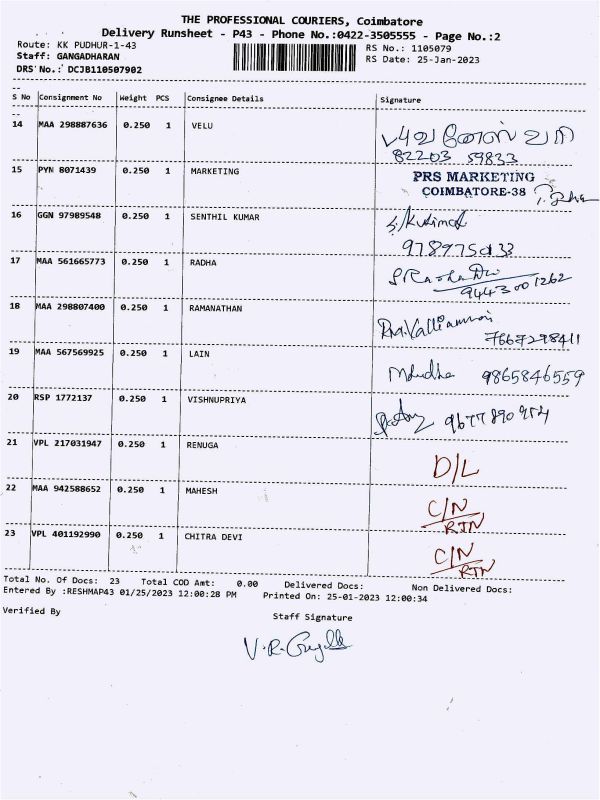 THE PROFESSIONAL COURIERS, Coimbatore
Delivery Runsheet - P43 - Phone No.:0422-3505555 - Page No.:2
Route: KK PUDHUR-1-43 RS No.: 1105079
Staff: GANGADHARAN RS Date: 25-Jan-2023
DRS No.: DCJB110507902
S No Consignment No Weight PCS Consignee Details Signature
14 MAA 298887636 0.250 1 VELU
82203 59833
15 PYN 8071439 0.250 1 MARKETING PRS MARKETING
COIMBATORE-38
16 GGN 97989548 0.250 1 SENTHIL KUMAR
17 MAA 561665773 0.250 1 RADHA
9443001262
18 MAA 298807400 0.250 1 RAMANATHAN
7667298411
19 MAA 567569925 0.250 1 LAIN
9865846559
20 RSP 1772137 0.250 1 VISHNUPRIYA
21 VPL 217031947 0.250 1 RENUGA
D/L
22 MAA 942588652 0.250 1 MAHESH C/N
RTN
23 VPL 401192990 0.250 1 CHITRA DEVI C/N
RTN
Total No. Of Docs: 23 Total COD Amt: 0.00 Delivered Docs: Non Delivered Docs:
Entered By :RESHMAP43 01/25/2023 12:00:28 PM Printed On: 25-01-2023 12:00:34
Verified By Staff Signature